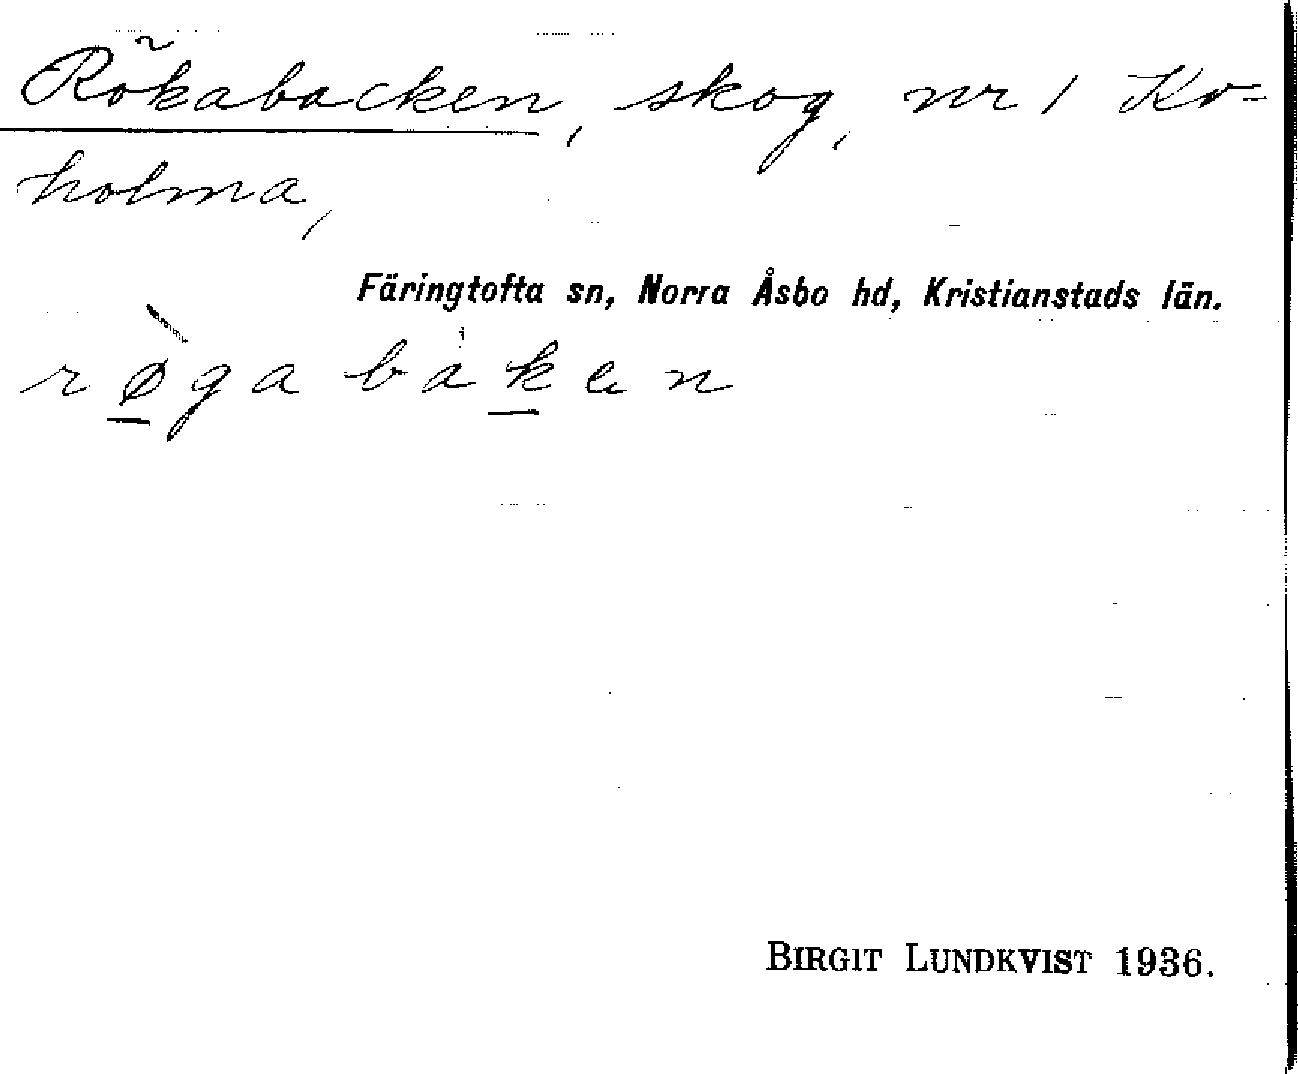 Rökabacken, skog, nr 1 Ko-
holma,
Färingtofta sn, Norra Åsbo hd, Kristianstads län.
rø̠̀ga bak̠en
BIRGIT LUNDKVIST 1936.